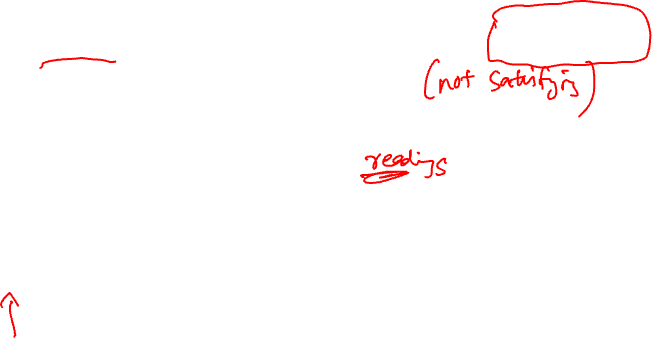 (not satisfying)
readings